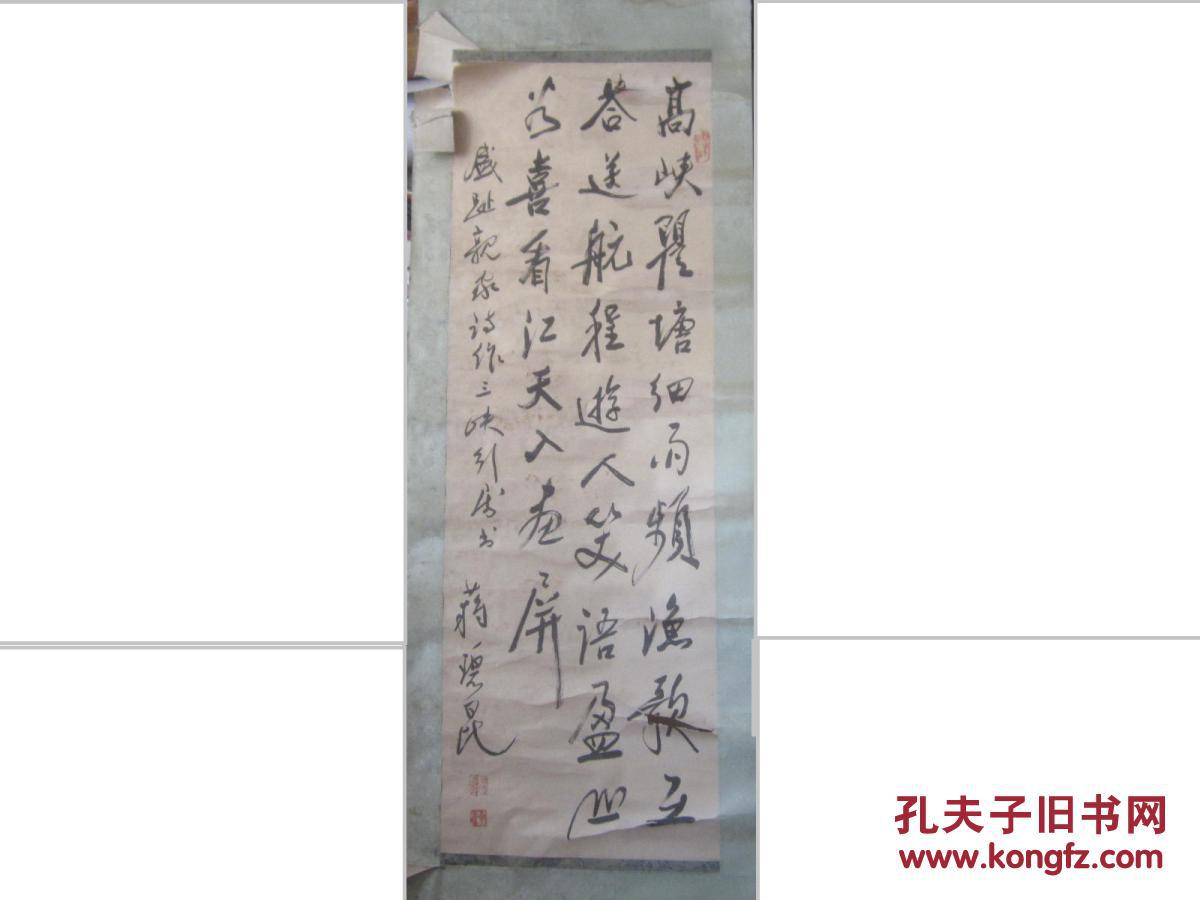 高峡瞿塘细雨频渔歌互
答送航程遊人笑语盈
喜看江天入画屏
盛趾親家诗作三峡引属书
蒋碧昆
孔夫子旧书网
www.kongfz.com